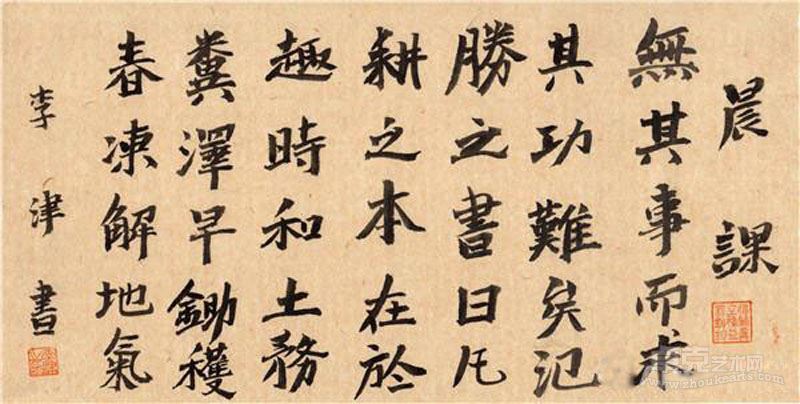 晨課
無其事而求
其功難矣氾
勝之書曰凡
耕之本在於
趣時和土務
糞澤早鋤穫
春凍解地氣
李津書
卓克艺术网
www.zhuokearts.com